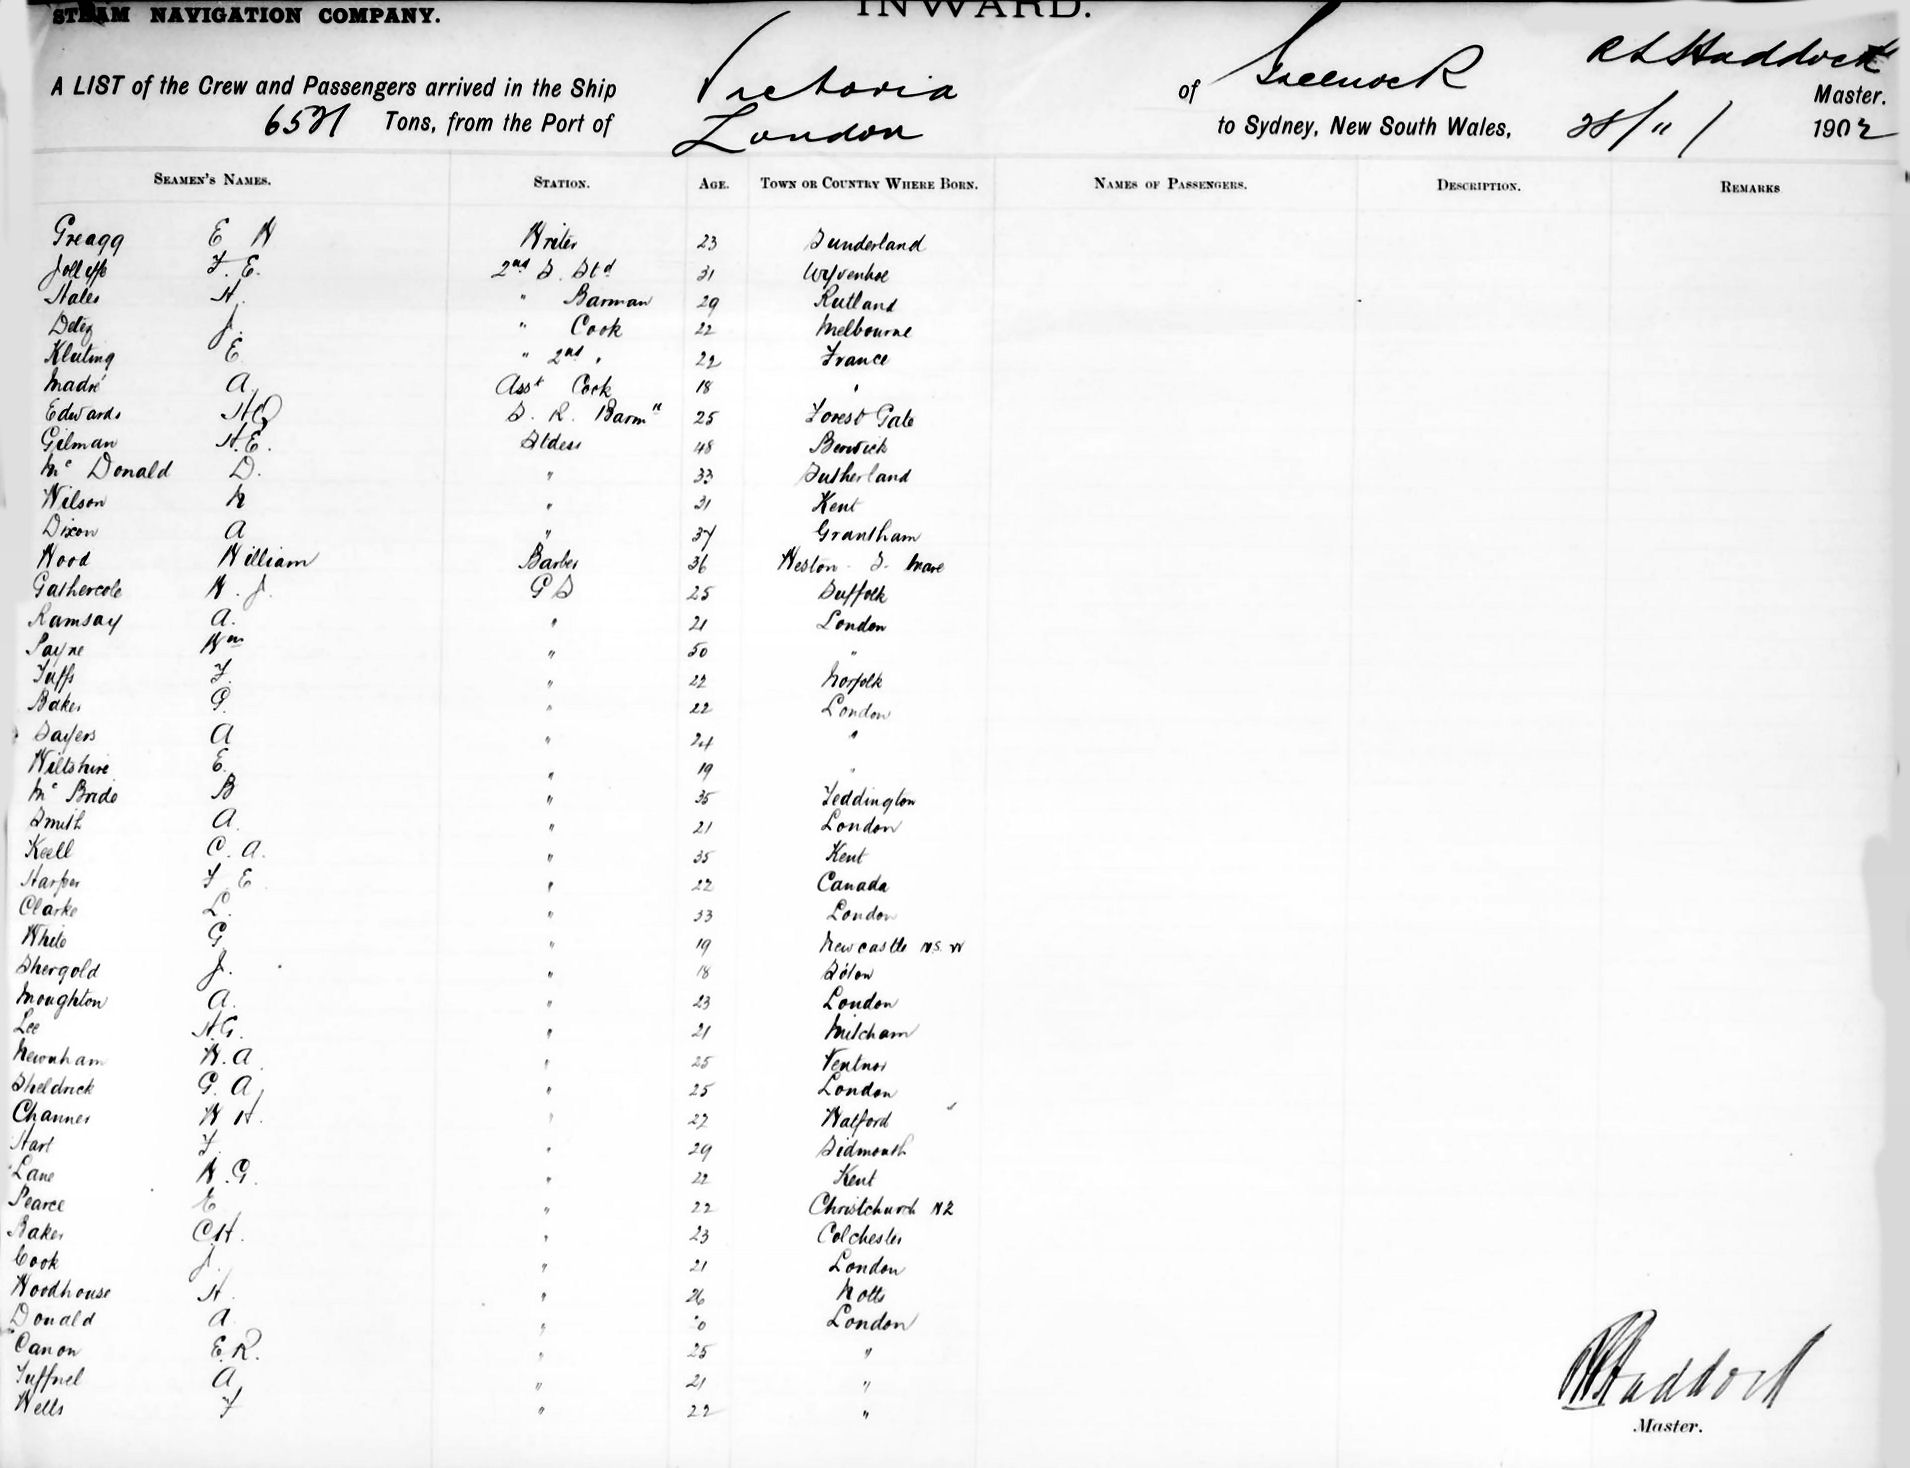 STEAM NAVIGATION COMPANY.
INWARD.
A LIST of the Crew and Passengers arrived in the Ship Victoria of Greenock Master.
Tons, from the Port of London to Sydney, New South Wales, 28/11/ 1902
SEAMEN'S NAMES. STATION. AGE. TOWN OR COUNTRY WHERE BORN. NAMES OF PASSENGERS. DESCRIPTION. REMARKS
Greagg E W Writer 23 Sunderland
Jolliffe F. E. 2nd S. Std 31 Wyvenhoe
Hales H. " Barman 29 Rutland
J. " Cook 22 Melbourne
Kluting E " 2nd " 22 France
Madré A. Asst Cook 18 "
Edwards S. R. Barmn 25 Forest Gate
Gilman H.E. Stdess 48 Berwick
Mc Donald D. " 33 Sutherland
Wilson M " 31 Kent
Dixon A " 37 Grantham
Wood William Barber 36 Weston - S - Mare
Gathercole W. J. G S 25 Suffolk
Ramsay A. " 21 London
Payne Wm " 50 "
Tuffs F. " 22 Norfolk
Baker G. " 22 London
Sayers A " 24 "
Wiltshire E. " 19 "
Mc Bride B " 35 Teddington
Smith A. " 21 London
Keell C. A. " 35 Kent
Harper F E " 22 Canada
Clarke L. " 33 London
White G " 19 Newcastle N.S.W
Shergold J. " 18 Soton
Moughton A. " 23 London
Lee H.G. " 21 Mitcham
Newnham W.A. " 25 Ventnor
Sheldrick G. A. " 25 London
Channer W H. " 27 Watford
Hart F. " 29 Sidmouth
Lane W.G. " 22 Kent
Pearce E " 22 Christchurch NZ
Baker C.H. " 23 Colchester
Cook J. " 21 London
Woodhouse H. " 26 Notts
Donald A. " London
Canon E.R. " 25 "
Tuffnel A " 21 "
Wells F " 22 "
Haddock
Master.